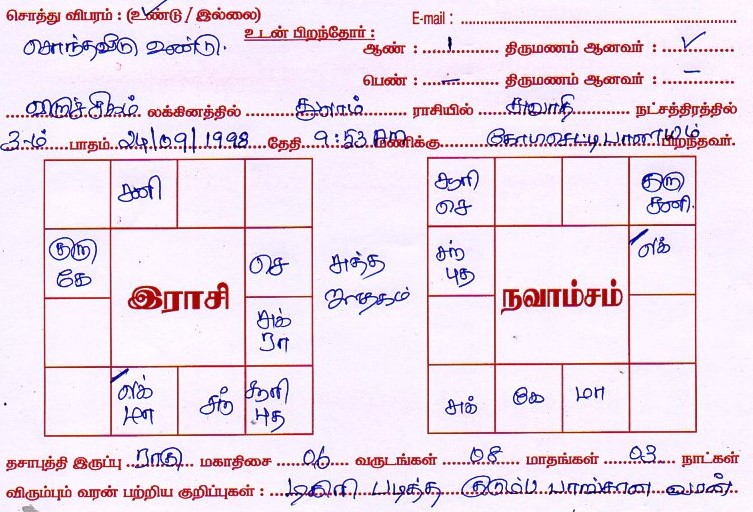 சொத்து விபரம் : (உண்டு / இல்லை) E-mail :
சொந்தவீடு உண்டு. உடன் பிறந்தோர் : ஆண் : 1 திருமணம் ஆனவர் : ✓
பெண் : – திருமணம் ஆனவர் : –
லக்கினத்தில் துலாம் ராசியில் சுவாதி நட்சத்திரத்தில்
3-ம் பாதம் 24/09/1998 தேதி 9:53 AM மணிக்கு கோமசெட்டிபாளையம் பிறந்தவர்.
சனி
குரு கே
செ
சுக் ரா
லக் மா
சந்
சூரி புத
இராசி
சுத்த ஜாதகம்
சூரி செ
குரு சனி
சந் புத
லக்
சுக்
கே
மா
நவாம்சம்
தசாபுத்தி இருப்பு ராகு மகாதிசை 06 வருடங்கள் 08 மாதங்கள் 03 நாட்கள்
விரும்பும் வரன் பற்றிய குறிப்புகள் : டிகிரி படித்த குடும்ப பாங்கான வரன்